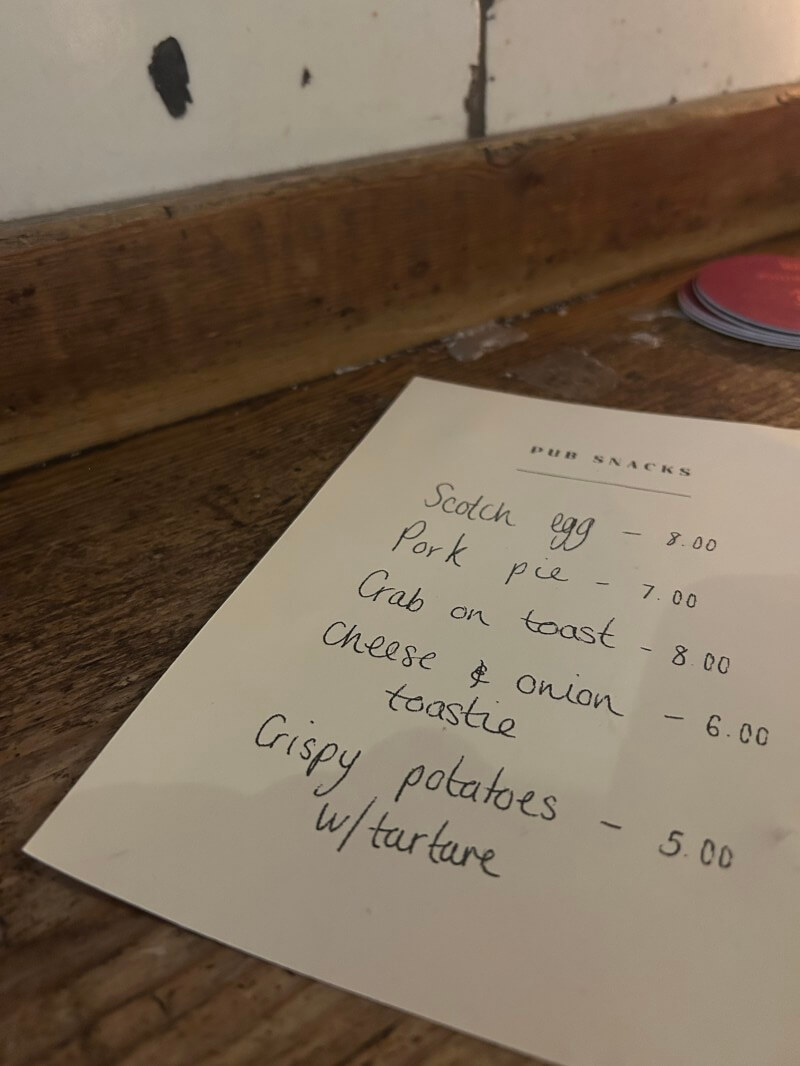 PUB SNACKS
Scotch egg - 8.00
Pork pie - 7.00
Crab on toast - 8.00
Cheese & onion - 6.00
toastie
Crispy potatoes - 5.00
w/tartare